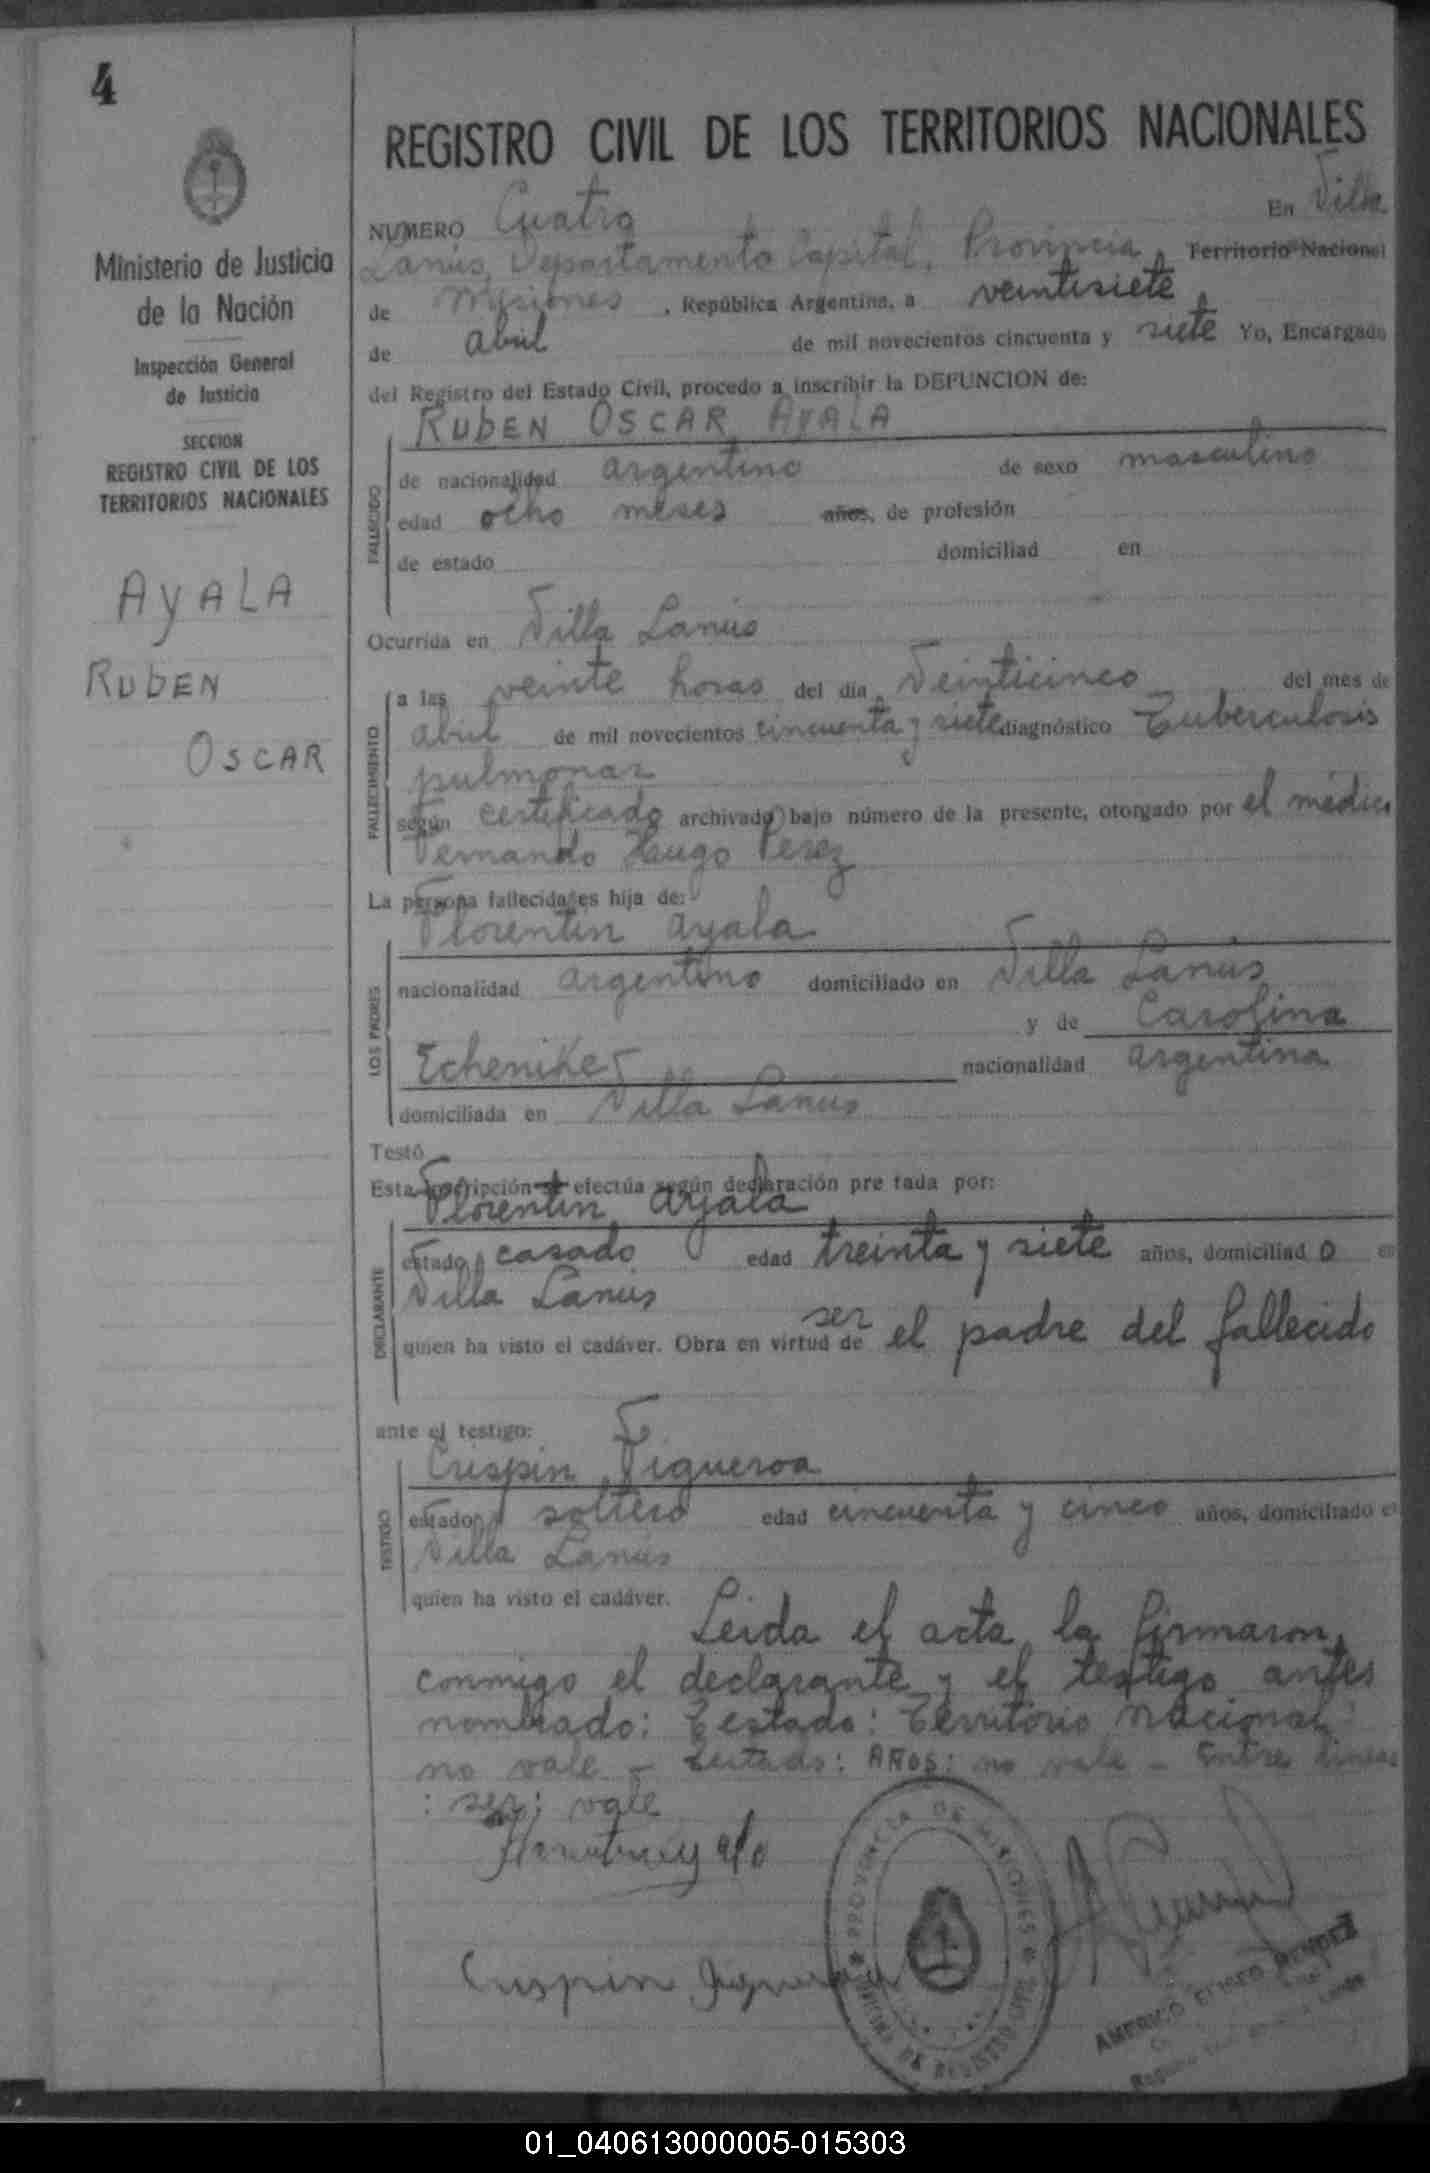 4
Ministerio de Justicia
de la Nación
Inspección General
de Justicia
SECCION
REGISTRO CIVIL DE LOS
TERRITORIOS NACIONALES
AYALA
RUBEN
OSCAR
REGISTRO CIVIL DE LOS TERRITORIOS NACIONALES
NUMERO Cuatro En Villa
Lanús, Departamento Capital, Provincia, Territorio Nacional
de Misiones, República Argentina, a veintisiete
de abril de mil novecientos cincuenta y siete Yo, Encargado
del Registro del Estado Civil, procedo a inscribir la DEFUNCION de:
RUBEN OSCAR AYALA
FALLECIDO
de nacionalidad argentino de sexo masculino
edad ocho meses años, de profesión
de estado domiciliad en
Ocurrida en Villa Lanús
FALLECIMIENTO
a las veinte horas del día Veinticinco del mes de
abril de mil novecientos cincuenta y siete diagnóstico Tuberculosis
pulmonar
según certificado archivado bajo número de la presente, otorgado por el médico
Fernando Hugo Perez
La persona fallecida es hija de:
LOS PADRES
Florentin Ayala
nacionalidad argentino domiciliado en Villa Lanús
y de Carolina
Echenike nacionalidad argentina
domiciliada en Villa Lanús
Testó
Esta inscripción se efectúa según declaración pre tada por:
DECLARANTE
Florentin Ayala
estado casado edad treinta y siete años, domiciliad o en
Villa Lanús
ser
quien ha visto el cadáver. Obra en virtud de el padre del fallecido
ante el testigo:
TESTIGO
Crispin Figueroa
estado soltero edad cincuenta y cinco años, domiciliado e
Villa Lanús
quien ha visto el cadáver.
Leida el acta la firmaron
conmigo el declarante y el testigo antes
nombrado: Testado: Territorio Nacional:
no vale - Testado: AÑOS: no vale - Entre lineas
: ser: vale
Crispin Figueroa
PROVINCIA DE MISIONES
DE REGISTRO CIVIL
AMERICO ELISEO MENDEZ
01_040613000005-015303